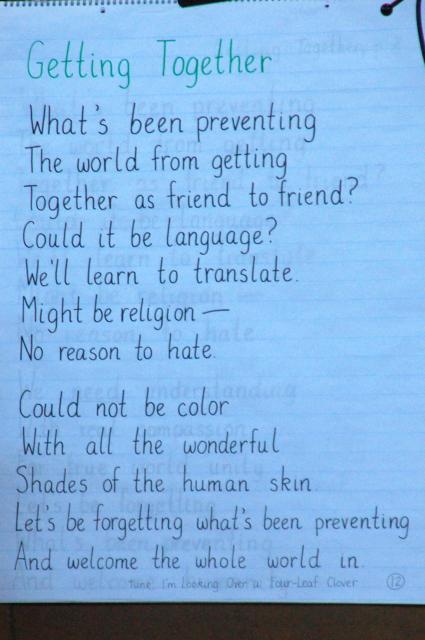 Getting Together
What's been preventing
The world from getting
Together as friend to friend?
Could it be language?
We'll learn to translate.
Might be religion —
No reason to hate.
Could not be color
With all the wonderful
Shades of the human skin.
Let's be forgetting what's been preventing
And welcome the whole world in.
Tune: I'm Looking Over a Four-Leaf Clover 12